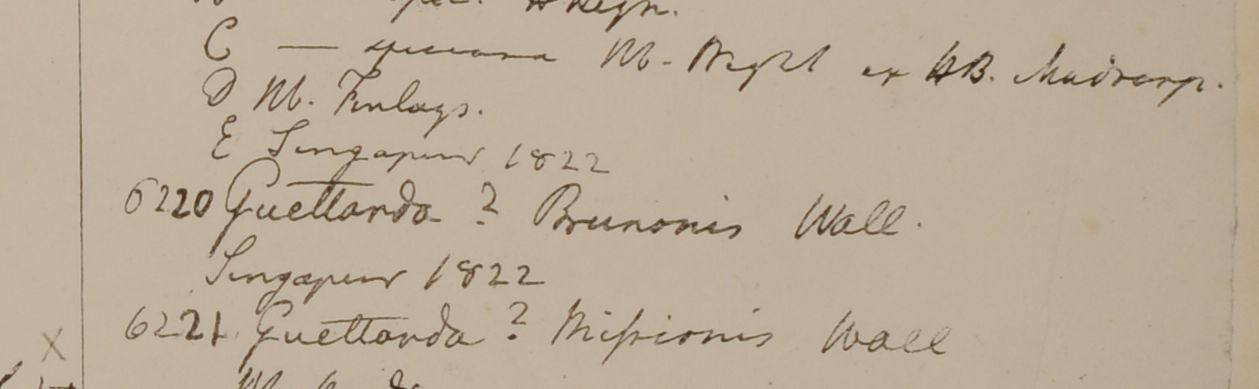 C — speciosa Hb. Wight ex HB. Madrasp.
D Hb. Finlays.
E Singapur 1822
6220 Guettarda ? Brunonis Wall.
Singapur 1822
6221 Guettarda ? Missionis Wall
X